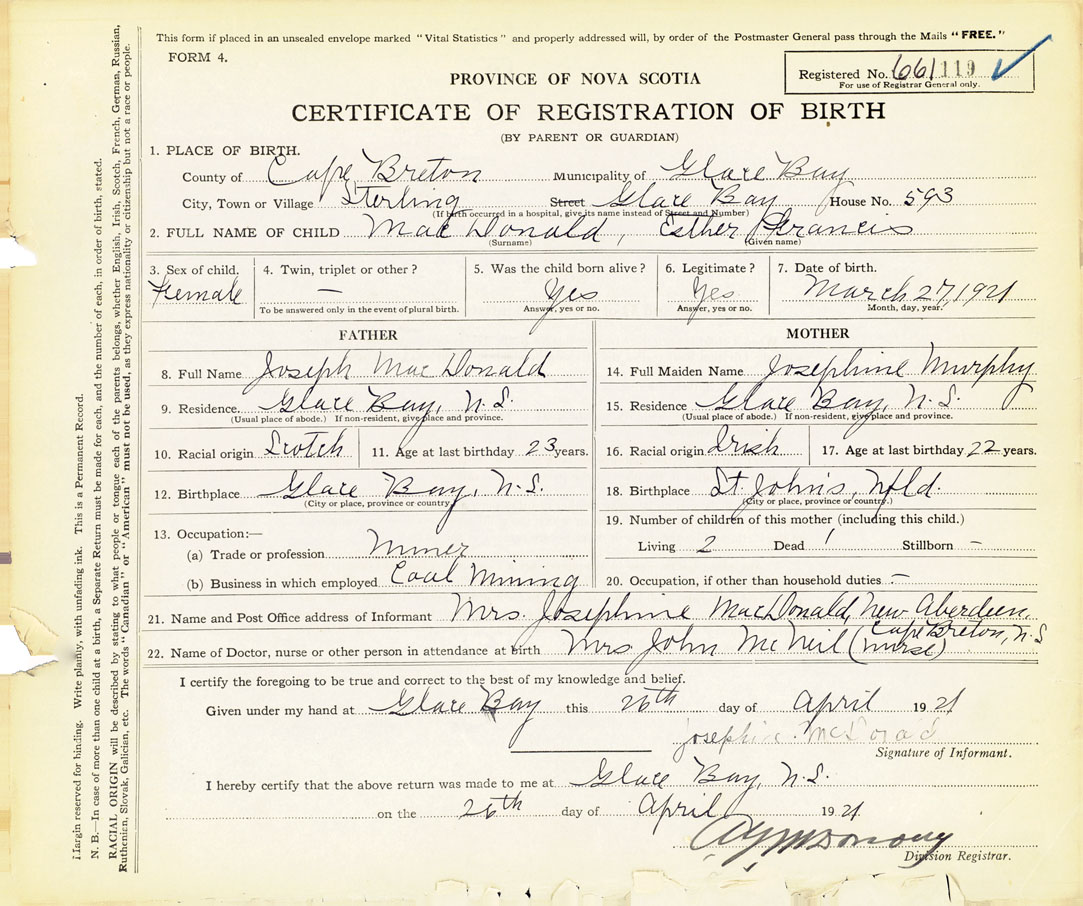 This form if placed in an unsealed envelope marked "Vital Statistics" and properly addressed will, by order of the Postmaster General pass through the Mails "FREE."
FORM 4.
Registered No. 661119
For use of Registrar General only.
PROVINCE OF NOVA SCOTIA
CERTIFICATE OF REGISTRATION OF BIRTH
(BY PARENT OR GUARDIAN)
1. PLACE OF BIRTH.
County of Cape Breton Municipality of Glace Bay
City, Town or Village Sterling Street Glace Bay House No. 593
(If birth occurred in a hospital, give its name instead of Street and Number)
2. FULL NAME OF CHILD MacDonald, Esther Francis
(Surname) (Given name)
3. Sex of child. Female
4. Twin, triplet or other? —
To be answered only in the event of plural birth.
5. Was the child born alive? Yes
Answer, yes or no.
6. Legitimate? Yes
Answer, yes or no.
7. Date of birth. March 27, 1921
Month, day, year.
FATHER
8. Full Name Joseph MacDonald
9. Residence. Glace Bay, N.S.
(Usual place of abode.) If non-resident, give place and province.
10. Racial origin Scotch 11. Age at last birthday 23 years.
12. Birthplace Glace Bay, N.S.
(City or place, province or country)
13. Occupation:—
(a) Trade or profession Miner
(b) Business in which employed Coal Mining
MOTHER
14. Full Maiden Name Josephine Murphy
15. Residence Glace Bay, N.S.
(Usual place of abode.) If non-resident, give place and province.
16. Racial origin Irish 17. Age at last birthday 22 years.
18. Birthplace St. John's, Nfld.
(City or place, province or country.)
19. Number of children of this mother (including this child.)
Living 2 Dead 1 Stillborn –
20. Occupation, if other than household duties –
21. Name and Post Office address of Informant Mrs. Josephine MacDonald, New Aberdeen, Cape Breton, N.S
22. Name of Doctor, nurse or other person in attendance at birth Mrs John McNeil (nurse)
I certify the foregoing to be true and correct to the best of my knowledge and belief.
Given under my hand at Glace Bay this 26th day of April 1921
Signature of Informant.
I hereby certify that the above return was made to me at Glace Bay, N.S.
on the 26th day of April 1921
Division Registrar.
Margin reserved for binding. Write plainly, with unfading ink. This is a Permanent Record.
N. B.—In case of more than one child at a birth, a Separate Return must be made for each, and the number of each, in order of birth, stated.
RACIAL ORIGIN will be described by stating to what people or tongue each of the parents belongs, whether English, Irish, Scotch, French, German, Russian,
Ruthenien, Slovak, Galician, etc. The words "Canadian" or "American" must not be used, as they express nationality or citizenship but not a race or people.